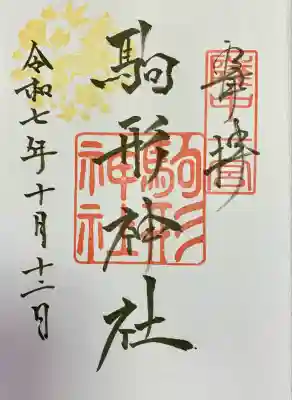 奉拝
駒形神社
駒形
神社
令和七年十月十二日